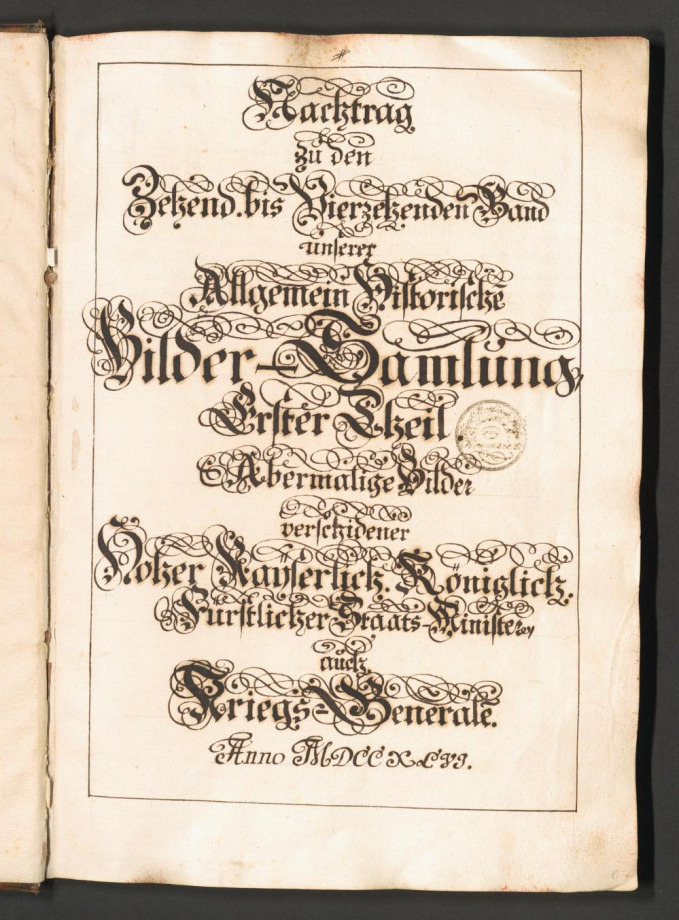 Nachtrag
zu den
Zehend. bis Vierzehenden Band
unserer
Allgemein Historischē
Bilder-Samlung,
Erster Theil
Abermalige Bilder
verschidener
Hoher Kayserlich. Königlich.
Fürstlicher Staats-Minister
auch
Kriegs-Generalē.
Anno MDCCXLVI.